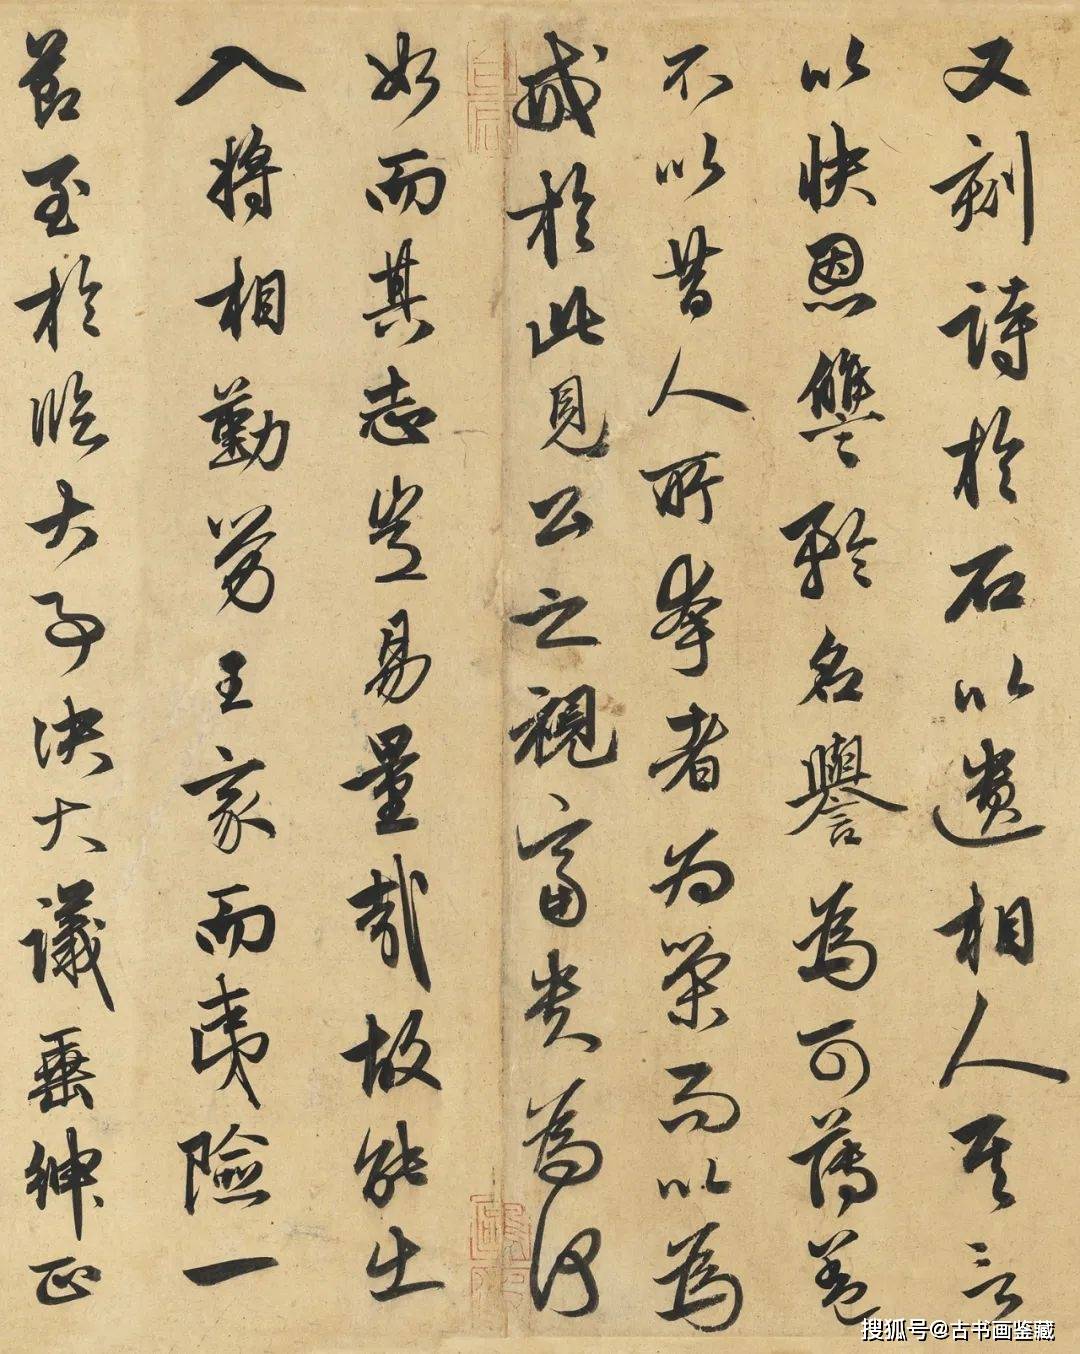 又刻詩於石以遺相人其言
以快恩讐矜名譽為可薄蓋
不以昔人所夸者為榮而以為
戒於此見公之視富貴為何
如而其志豈易量哉故能出
入將相勤勞王家而夷險一
節至於臨大事決大議垂紳正
搜狐号@古书画鉴藏